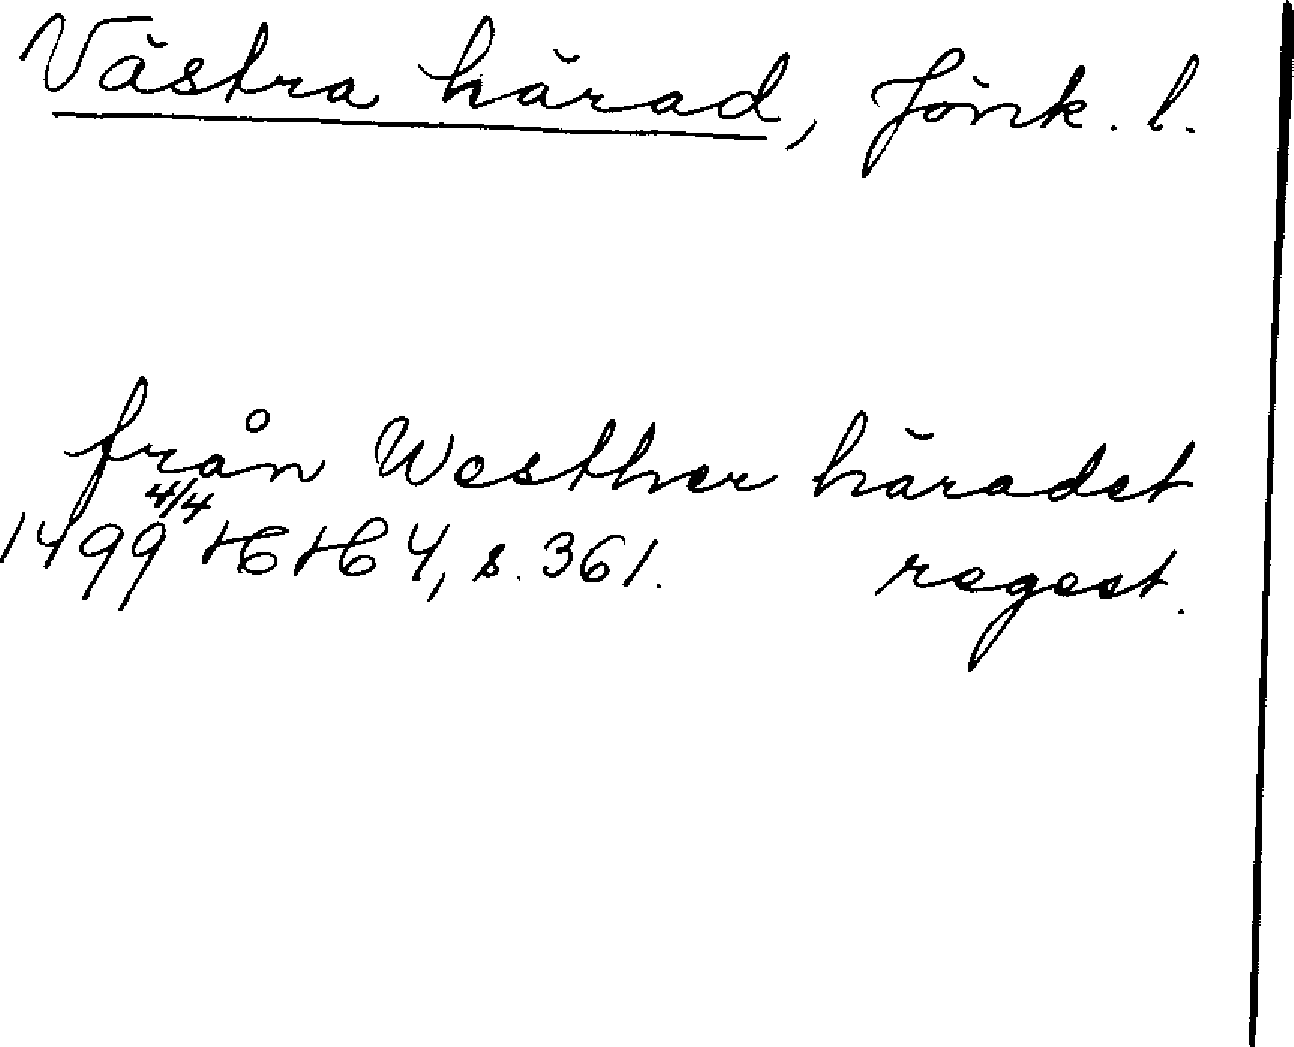 Västra härad, Jönk. l.
från Westher häradet
1499 4/4 HH 4, s. 361. regest.